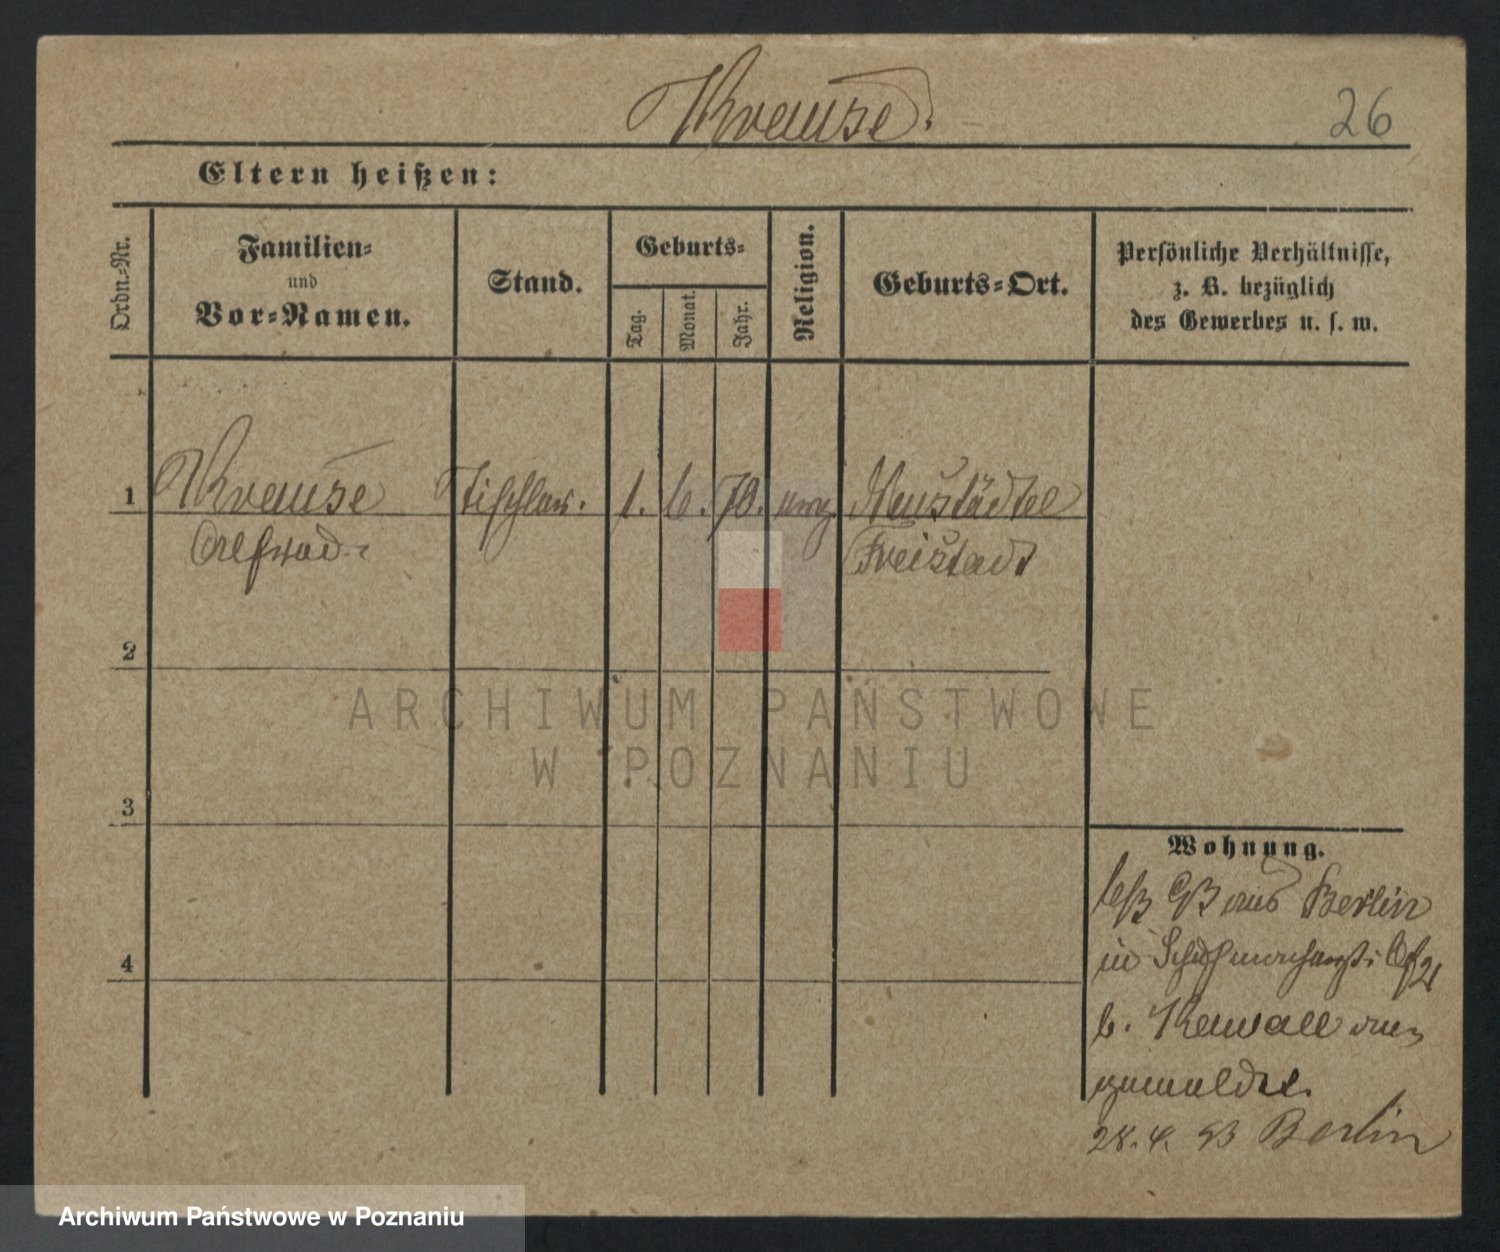 Krause.
26
Eltern heißen:
Ordn.-Nr.
Familien-
und
Vor-Namen.
Stand.
Geburts-
Tag.
Monat.
Jahr.
Religion.
Geburts-Ort.
Persönliche Verhältnisse,
z. B. bezüglich
des Gewerbes u. s. w.
1 Krause Tischler. 1. 6. 70. evg. Neustädtel
Alfred Freistadt
2
ARCHIWUM PAŃSTWOWE
W POZNANIU
3
Wohnung.
93 aus Berlin
in
b. Kewall an
gemeldet.
28. 4. 93 Berlin
4
Archiwum Państwowe w Poznaniu